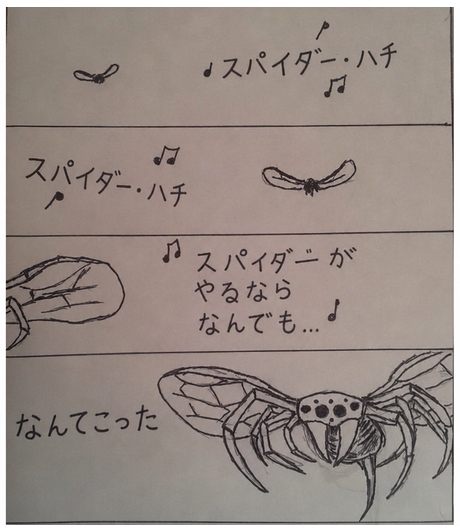 ♪スパイダー・ハチ♪
♫
♫
スパイダー・ハチ
♪
♫スパイダーが
やるなら
なんでも…♪
なんてこった